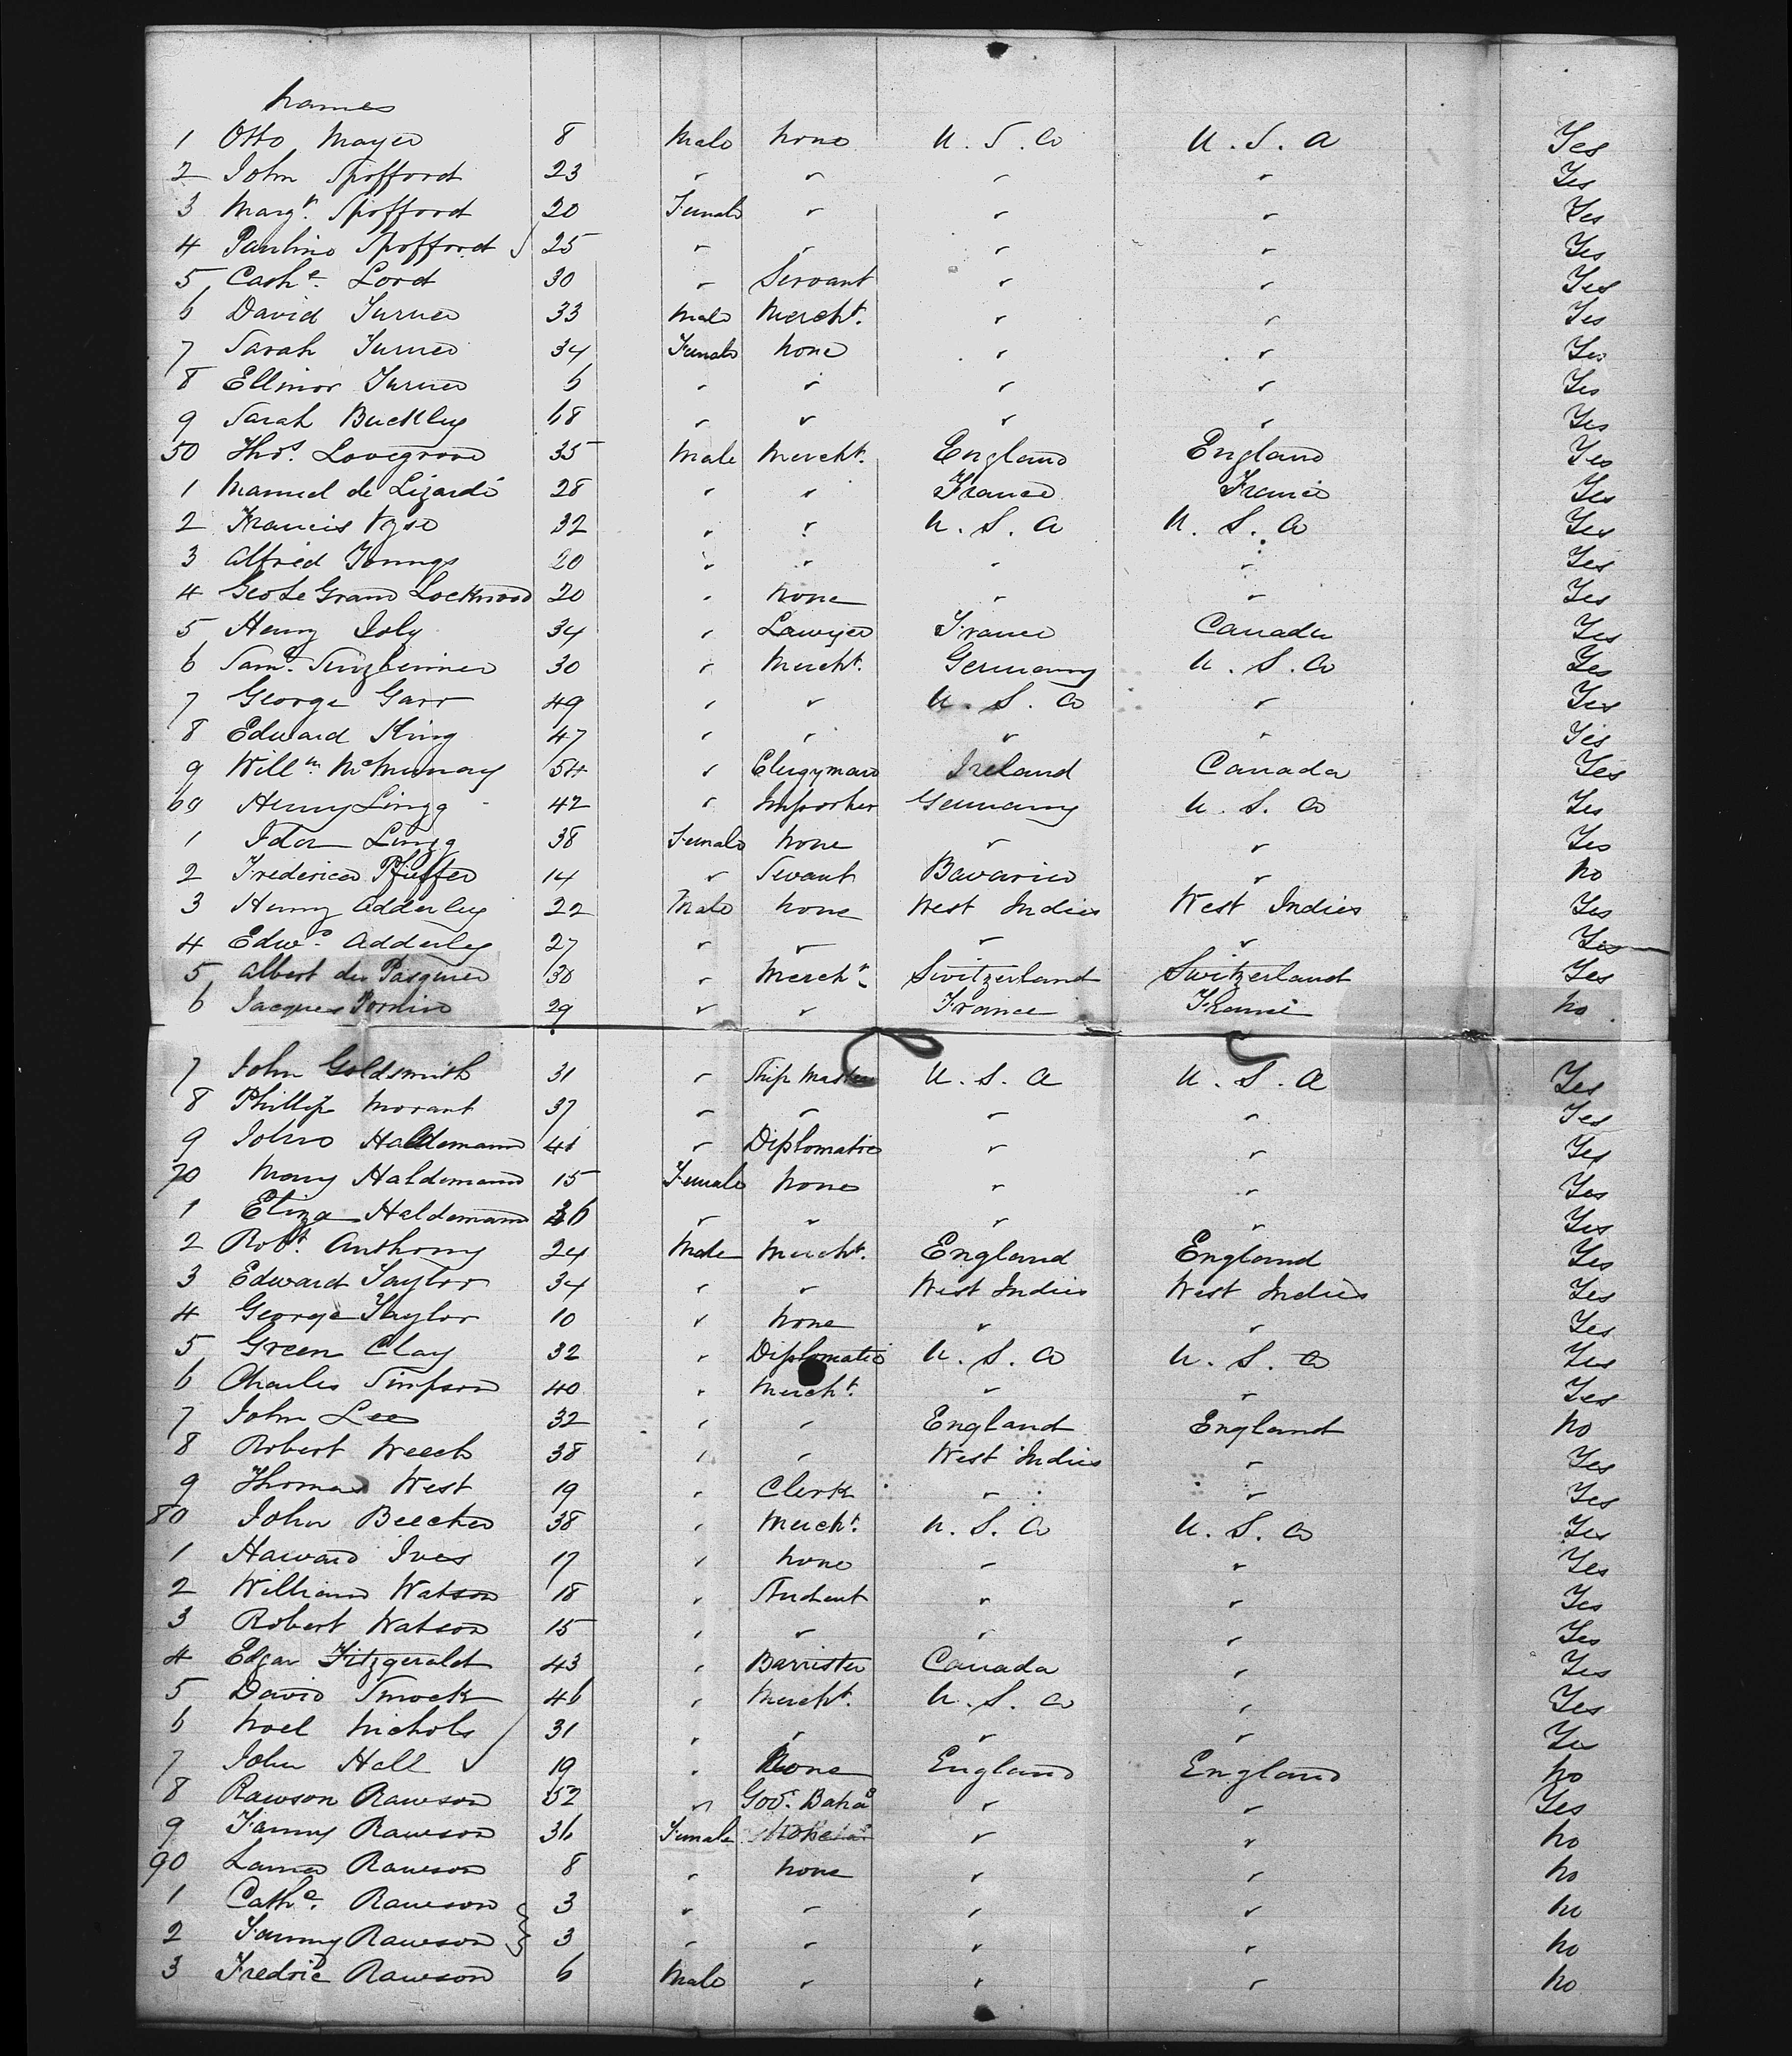 Names
1 Otto Mayer 8 Male None U.S.A U.S.A Yes
2 John Spofford 23 " " " " Yes
3 Margt. Spofford 20 Female " " " Yes
4 Pauline Spofford 25 " " " " Yes
5 Cathe. Lord 30 " Servant " " Yes
6 David Turner 33 Male Mercht. " " Yes
7 Sarah Turner 34 Female None " " Yes
8 Ellinor Turner 6 " " " " Yes
9 Sarah Buckley 68 " " " " Yes
50 Thos. Lovegrove 35 Male Mercht. England England Yes
1 Manuel de Lizardi 28 " " France France Yes
2 Francis Vyse 32 " " U.S.A U.S.A Yes
3 Alfred Youngs 20 " " " " Yes
4 Geo Le Grand Lockwood 20 " None " " Yes
5 Henry Joly 34 " Lawyer France Canada Yes
6 Saml. 30 " Mercht. Germany U.S.A Yes
7 George Garr 49 " " U.S.A " Yes
8 Edward King 47 " " " " Yes
9 Willm. McMurray 54 " Clergyman Ireland Canada Yes
60 Henry Lingg 42 " Importer Germany U.S.A Yes
1 Ida Lingg 38 Female None " " Yes
2 Frederica Pfeiffer 14 " Servant Bavaria " No
3 Henry Adderley 22 Male None West Indies West Indies Yes
4 Edwd. Adderley 27 " " " " Yes
5 Albert du Pasquier 30 " Mercht. Switzerland Switzerland Yes
6 Jacques Pornin 29 " " France France No
7 John Goldsmith 31 " Ship Master U.S.A U.S.A Yes
8 Phillip Morant 37 " " " " Yes
9 John Haldemann " Diplomatic " " Yes
70 Mary Haldemann 15 Female None " " Yes
1 Eliza Haldemann 36 " " " " Yes
2 Robt. Anthony 24 Male Mercht. England England Yes
3 Edward Taylor 34 " " West Indies West Indies Yes
4 George Taylor 10 " None " " Yes
5 Green Clay 32 " Diplomatic U.S.A U.S.A Yes
6 Charles Simpson 40 " Mercht. " " Yes
7 John Lee 32 " " England England No
8 Robert Weech 38 " " West Indies " Yes
9 Thomas West 19 " Clerk " " Yes
80 John Beecher 38 " Mercht. U.S.A U.S.A Yes
1 Howard Ives 17 " None " " Yes
2 William Watson 18 " Student " " Yes
3 Robert Watson 15 " " " " Yes
4 Edgar Fitzgerald 43 " Barrister Canada " Yes
5 David Smock 46 " Mercht. U.S.A " Yes
6 Noel Nichols 31 " " " " Yes
7 John Hall 19 " None England England No
8 Rawson Rawson 52 " Govr. Bahas " " Yes
9 Fanny Rawson 36 Female " " No
90 Laura Rawson 8 " None " " No
1 Cathe. Rawson 3 " " " " No
2 Fanny Rawson 3 " " " " No
3 Fredric Rawson 6 Male " " " No